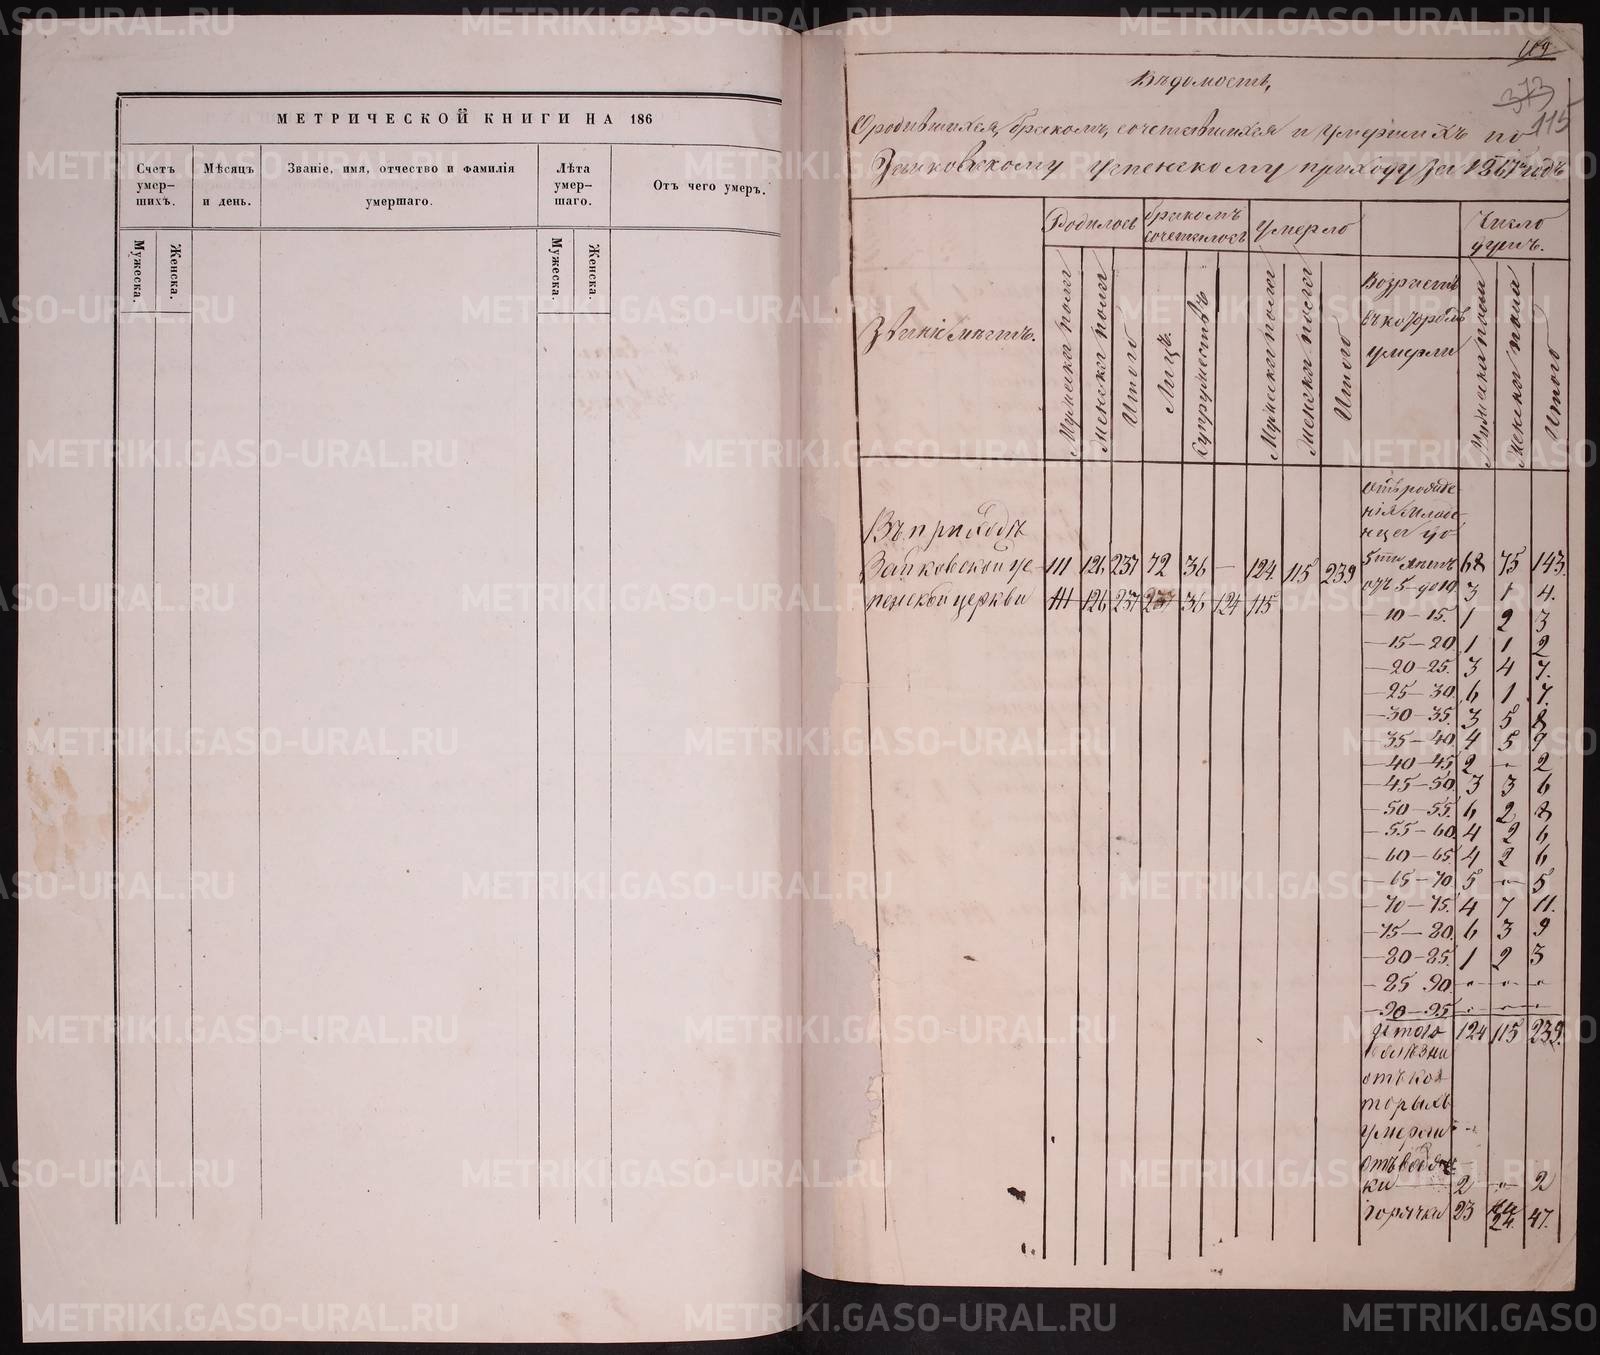 МЕТРИЧЕСКОЙ КНИГИ НА 186
Счетъ умер-шихъ.
Мѣсяцъ и день.
Званіе, имя, отчество и фамилія умершаго.
Лѣта умер-шаго.
Отъ чего умеръ.
Мужеска.
Женска.
Мужеска.
Женска.
373
115
Вѣдомость,
О родившихся, бракомъ сочетавшихся и умершихъ по
Зайковскому Успенскому приходу за 1867й годъ
Званіе мѣстъ.
Родилось
бракомъ сочеталось
умерло
Возрастъ въ которомъ умерли
Число душъ.
Мужеска пола
Женска пола
Итого
Лицъ.
Супружествъ
Мужеска пола
Женска пола
Итого
Мужеска пола
Женска пола
Итого
Въ приходѣ
Зайковской Ус- 111 126 237 72 36 — 124 115 239
пенской церкви 111 126 237 237 36 124 115
Отъ рожде-
нія младе-
нца до
5ти лѣтъ 68 75 143.
отъ 5 до 10 3 1 4.
— 10 — 15. 1 2 3
— 15 — 20. 1 1 2
— 20 — 25. 3 4 7.
— 25 — 30. 6 1 7.
— 30 — 35. 3 5 8
— 35 — 40. 4 5 9
— 40 — 45 2 - 2
— 45 — 50. 3 3 6
— 50 — 55. 6 2 8
— 55 — 60. 4 2 6
— 60 — 65 4 2 6
— 65 — 70. 5 - 5
— 70 — 75. 4 7 11.
— 75 — 80. 6 3 9
— 80 — 85. 1 2 3
— 85 90. - - -
— 90 — 95 - - -
Итого 124 115 239.
болѣзни
отъ ко-
торыхъ
умерли
отъ водян-
ки 2 - 2
Горячки 23 24. 47.
METRIKI.GASO-URAL.RU